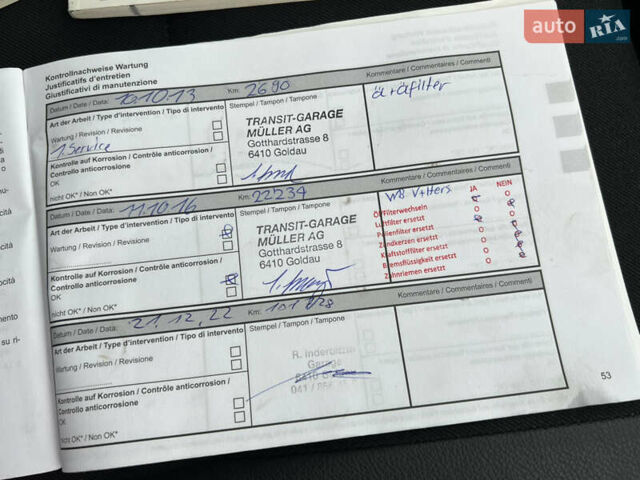 auto RIA .com
Kontrollnachweise Wartung
Justificatifs d'entretien
Giustificativi di manutenzione
Datum / Date / Data: 10.10.13 Km: 2690
Art der Arbeit / Type d'intervention / Tipo di intervento
Wartung / Revision / Revisione
1. Service
Kontrolle auf Korrosion / Contrôle anticorrosion /
Controllo anticorrosione
OK
nicht OK* / Non OK*
Stempel / Tampon / Tampone
TRANSIT-GARAGE
MÜLLER AG
Gotthardstrasse 8
6410 Goldau
Kommentare / Commentaires / Commenti
Datum / Date / Data: 11.10.16 Km: 22234
Art der Arbeit / Type d'intervention / Tipo di intervento
Wartung / Revision / Revisione
Kontrolle auf Korrosion / Contrôle anticorrosion /
Controllo anticorrosione
OK
nicht OK* / Non OK*
Stempel / Tampon / Tampone
TRANSIT-GARAGE
MÜLLER AG
Gotthardstrasse 8
6410 Goldau
Kommentare / Commentaires / Commenti
JA NEIN
Ölfilterwechseln
Luftfilter ersetzt
Pollenfilter ersetzt
Zündkerzen ersetzt
Kraftstoffilter ersetzt
Bremsflüssigkeit ersetzt
Zahnriemen ersetzt
Datum / Date / Data: 21.12.22 Km:
Art der Arbeit / Type d'intervention / Tipo di intervento
Wartung / Revision / Revisione
Kontrolle auf Korrosion / Contrôle anticorrosion /
Controllo anticorrosione
OK
nicht OK* / Non OK*
Stempel / Tampon / Tampone
Kommentare / Commentaires / Commenti
R. Inderbitzin
Garage
6410
041 /
53